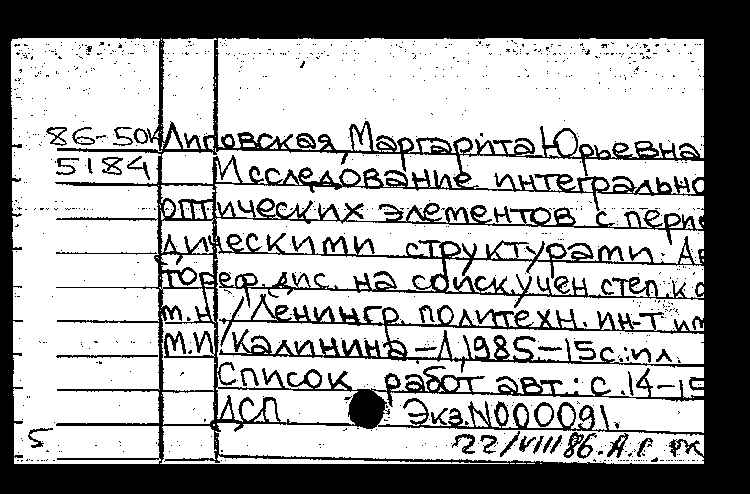 86-50к Липовская, Маргарита Юрьевна
5184 Исследование интегрально
оптических элементов с перио
дическими структурами: Ав
тореф. дис. на соиск. учен степ. к
т. н. /Ленингр. политехн. ин-т им
М.И. Калинина.-Л, 1985-15с.:ил.
Список работ авт.: с.14-15
ДСП. Экз.N000091.
5 22/VIII86. А.Г.